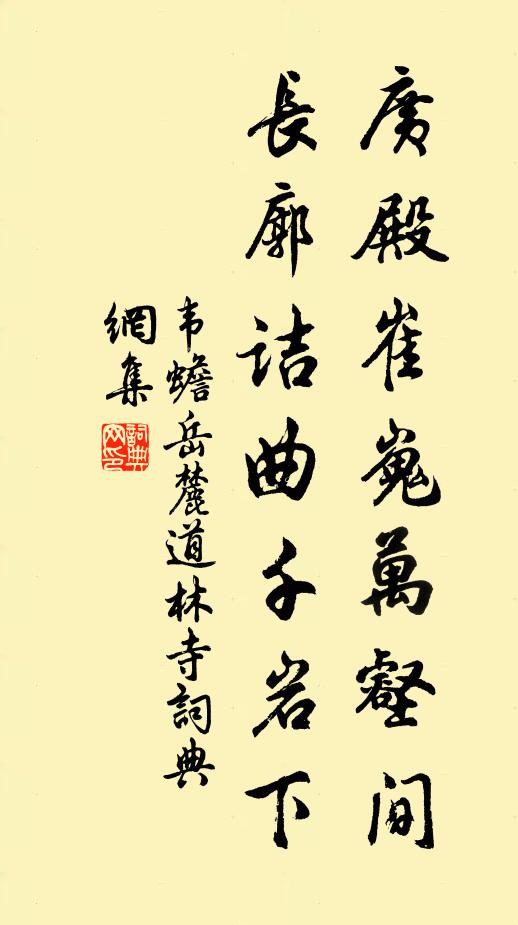 廣殿崔嵬萬壑间
長廊诘曲千岩下
韦蟾岳麓道林寺詞典
網集
詞典网印